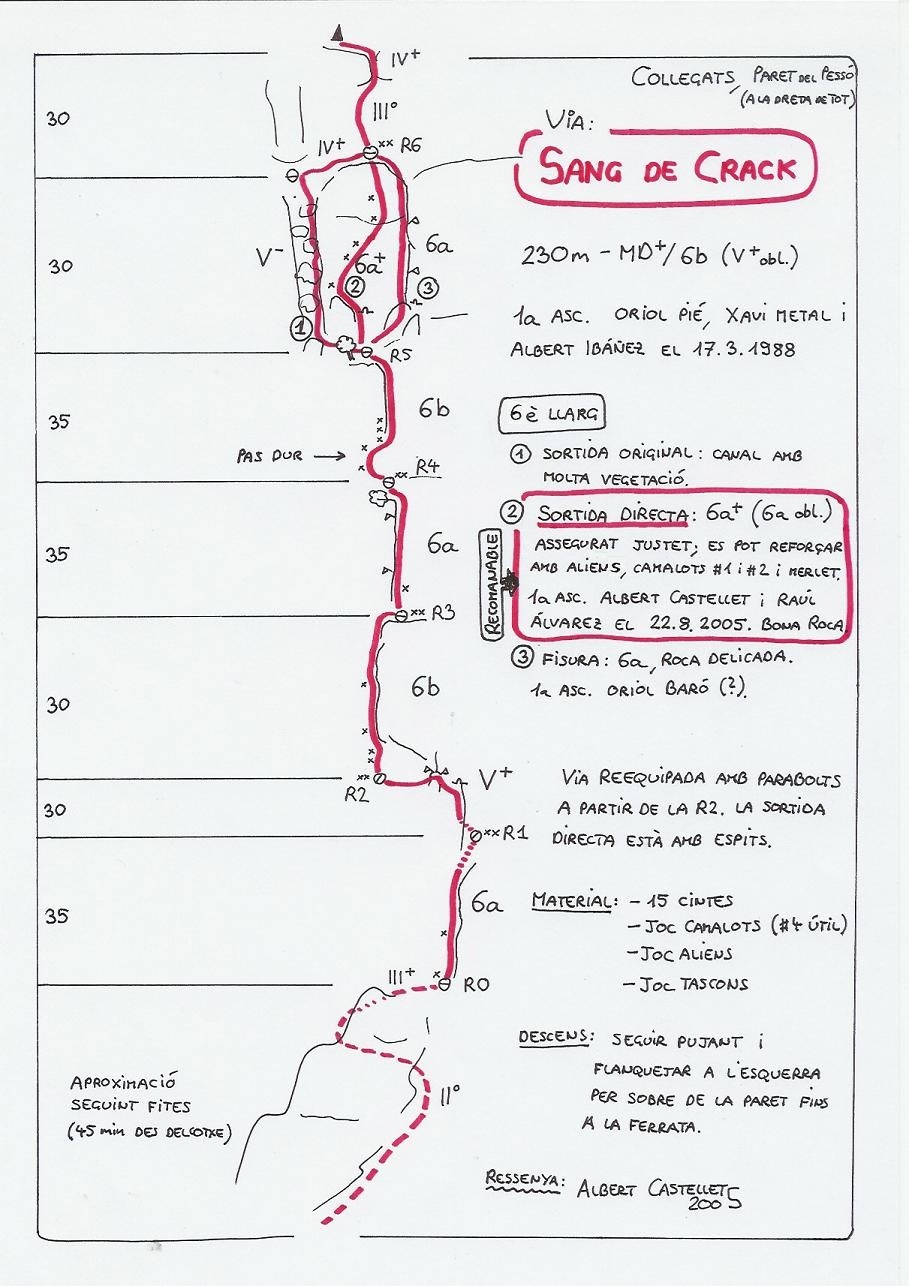 COLLEGATS, PARET DEL PESSÓ
(A LA DRETA DE TOT)
VIA:
SANG DE CRACK
230m - MD+/6b (V+ obl.)
1a ASC. ORIOL PIÉ, XAVI METAL i
ALBERT IBÁÑEZ EL 17.3.1988
6è LLARG
① SORTIDA ORIGINAL: CANAL AMB
MOLTA VEGETACIÓ.
② SORTIDA DIRECTA: 6a+ (6a obl.)
ASSEGURAT JUSTET; ES POT REFORÇAR
AMB ALIENS, CAMALOTS #1 i #2 i MERLET.
1a ASC. ALBERT CASTELLET i RAÚL
ÁLVAREZ EL 22.8.2005. BONA ROCA.
RECOMANABLE
③ FISURA: 6a, ROCA DELICADA.
1a ASC. ORIOL BARÓ (?).
VIA REEQUIPADA AMB PARABOLTS
A PARTIR DE LA R2. LA SORTIDA
DIRECTA ESTÀ AMB ESPITS.
MATERIAL: - 15 CINTES
- JOC CAMALOTS (#4 ÚTIL)
- JOC ALIENS
- JOC TASCONS
DESCENS: SEGUIR PUJANT i
FLANQUETAR A L'ESQUERRA
PER SOBRE DE LA PARET FINS
A LA FERRATA.
RESSENYA: ALBERT CASTELLET
2005
IV+
30
III°
IV+
R6
30
V-
6a+
6a
①
②
③
R5
35
6b
PAS DUR →
R4
35
6a
R3
30
6b
R2
V+
30
R1
35
6a
III+
R0
II°
APROXIMACIÓ
SEGUINT FITES
(45 min DES DEL COTXE)